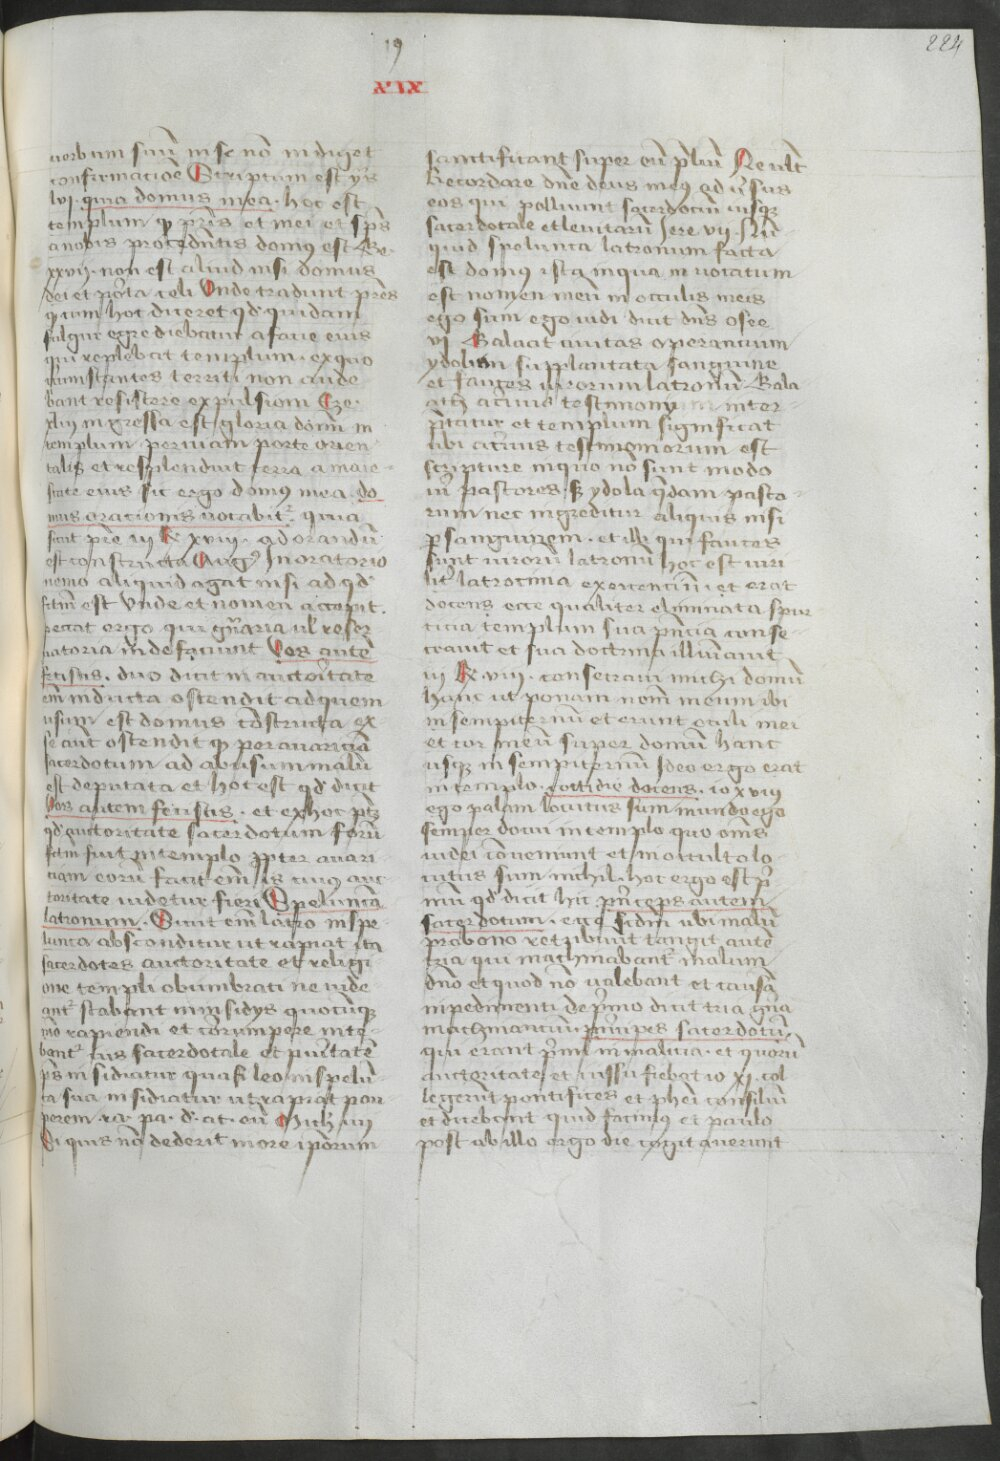 224
19
XIX
uerbum suū in se nō indiget
confirmacioē Scriptum est ys
lvj. quia domus mea. hoc est
templum qd pr̄is et mei et sp̄s
a nobis procedn̄tis domus est Ge.
xxviij. non est aliud nisi domus
dei et porta celi Unde tradunt pr̄es
qd cum hoc diceret qd quidam
fulgur egrediebatur a facie eius
qui replebat templum. ex quo
circumstantes territi non aude
bant resistere expulsioni Eze.
xliij ingressa est gloria domini in
templum. per uiam porte orien
talis et resplenduit terra a maie
state eius sic ergo domus mea do
mus oracionis uocabit. quia
sicut pr̄e iij R xviij. ad orandū
est constructa Aug. In oratorio
nemo aliquid agat nisi ad qd
factū est Unde et nomen accepit.
peccat ergo qui
in de faciunt Uos autē
fecistis. duo dicit in auctoritate
enī inducta ostendit ad quem
usum est domus cōstructa ex
se aūt ostendit qd per auariciā
sacerdotum ad abusum malū
est deputata et hoc est qd dicit
Uos autem fecistis. et ex hoc ptz
qd auctoritate sacerdotum forū
factū fuit in templo ppter auari
ciam eorū facit enī is cuius auc
toritate uidetur fieri Speluncā
latronum. Sicut enī latro in spe
lunca absconditur ut rapiat ita
sacerdotes auctoritate et religi
one templi obumbrati ne uide
ant stabant in insidys quocūqz
mō rapiendi et corrumpere inte
bant ius sacerdotale et puritatē
ps insidiatur quasi leo in spelū
ca sua insidiatur ut rapiat pau
perem. ra. pa. d. at. eū Mich. iij
Si quis nō dederit in ore ipsorum
sanctificant super eū prelium Ne ult
Recordare dn̄e deus meus aduersus
eos qui polluunt sacerdociū iusqz
sacerdotale et leuitarū Jere vij. Nū
quid spelunca latronum facta
est domus ista in qua inuocatum
est nomen meū in occulis meis
ego sum ego uidi dicit dn̄s Osee
vj Galaat ciuitas operancium
ydolum supplantata sanguine
et fauces uirorum latronū Gala
ath aceruus testimonij inter
pretatur et templum significat
ubi aceruus testimoniorum est
scripture in quo nō sunt modo
ueri pastores. sz ydola quedam pasto
rum nec ingreditur aliquis nisi
per sanguinem. et illi qui fauces
sunt uirorū latronū hoc est uiri
liter latrocinia exercenciū et erat
docens ecce qualiter eliminata spur
ticia templum sua pn̄cia conse
crauit et sua doctrina illuminauit
iij R. viij. consecraui michi domū
hanc ut ponam nomē meum ibi
in sempiternū et erunt oculi mei
et cor meū super domū hanc
usqz in sempiternū Ideo ergo erat
in templo. cottidie docens. io xviij
ego palam locutus sum mundo ego
semper docui in templo quo om̄s
iudei cōueniunt et in occulto lo
cutus sum nichil. hoc ergo est pri
mū qd dicit hic princeps autem
sacerdotum. ecce secūdm ubi malū
pro bono retribuūt tangit autē
tria qui machinabant malum
dn̄o et quod nō ualebant et causā
inpedimenti de primo dicit tria genera
machinanciū. principes sacerdotū.
qui erant primi in malicia. et quorū
auctoritate et iussu fiebat io xj. col
legerunt pontifices et pharisei consiliū
et dicebant quid facimus et paulo
post ab illo ergo die cogitauerunt